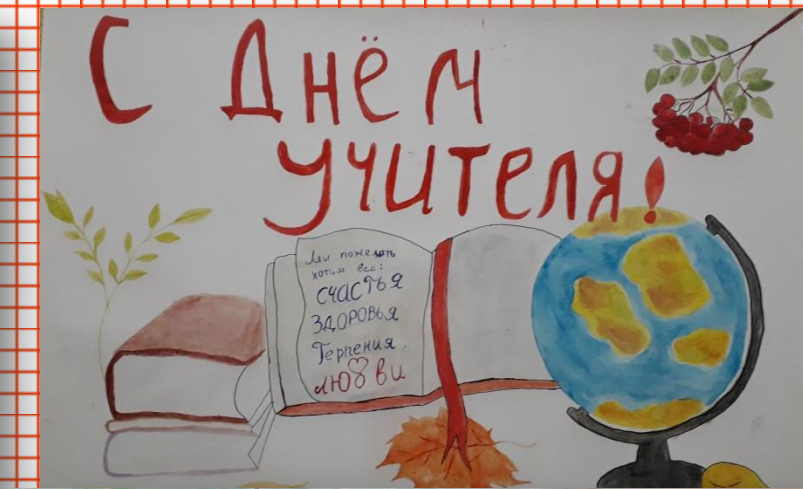 С Днём
учителя!
Мы пожелать
хотим вам:
счастья
здоровья
Терпения,
любви